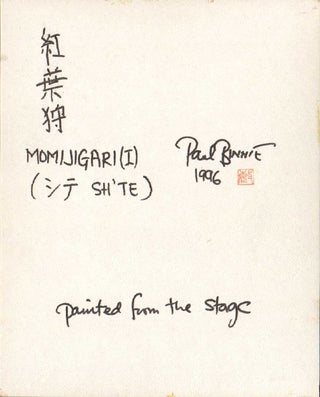 紅葉狩
MOMIJIGARI(I)
(シテ SH'TE)
Paul BINNIE
1996
painted from the stage